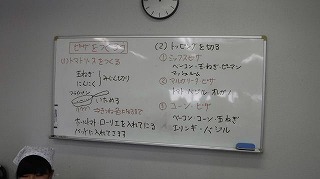 ピザをつくろう
(1)トマトソースをつくる
玉ねぎ
にんにく
みじんぎり
いためる
ホールトマト ローリエを入れてにる
(2) トッピングを切る
① ミックスピザ
ベーコン・玉ねぎ・ピーマン
マッシュルーム
② マルゲリータピザ
トマト バジル
③ コーン・ピザ
ベーコン コーン・玉ねぎ
エリンギ・バジル